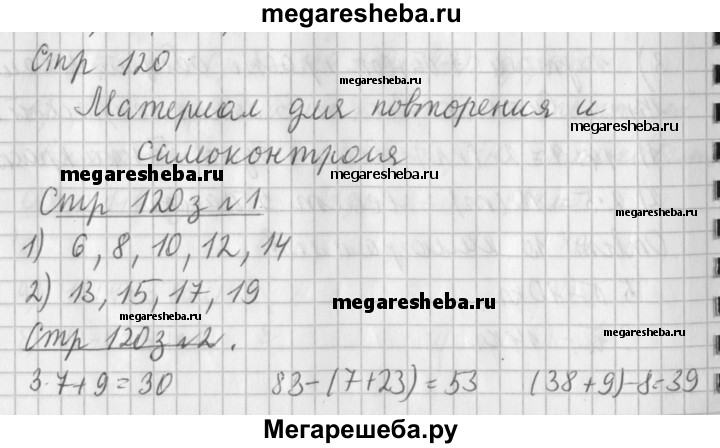 megaresheba.ru
Стр 120
megaresheba.ru
Материал для повторения и
megaresheba.ru
самоконтроля
megaresheba.ru
megaresheba.ru
Стр 120 з №1
megaresheba.ru
1) 6, 8, 10, 12, 14
2) 13, 15, 17, 19
megaresheba.ru
megaresheba.ru
Стр 120 з №2.
megaresheba.ru
3·7+9=30 83-(7+23)=53 (38+9)-8=39
Мегарешеба.ру